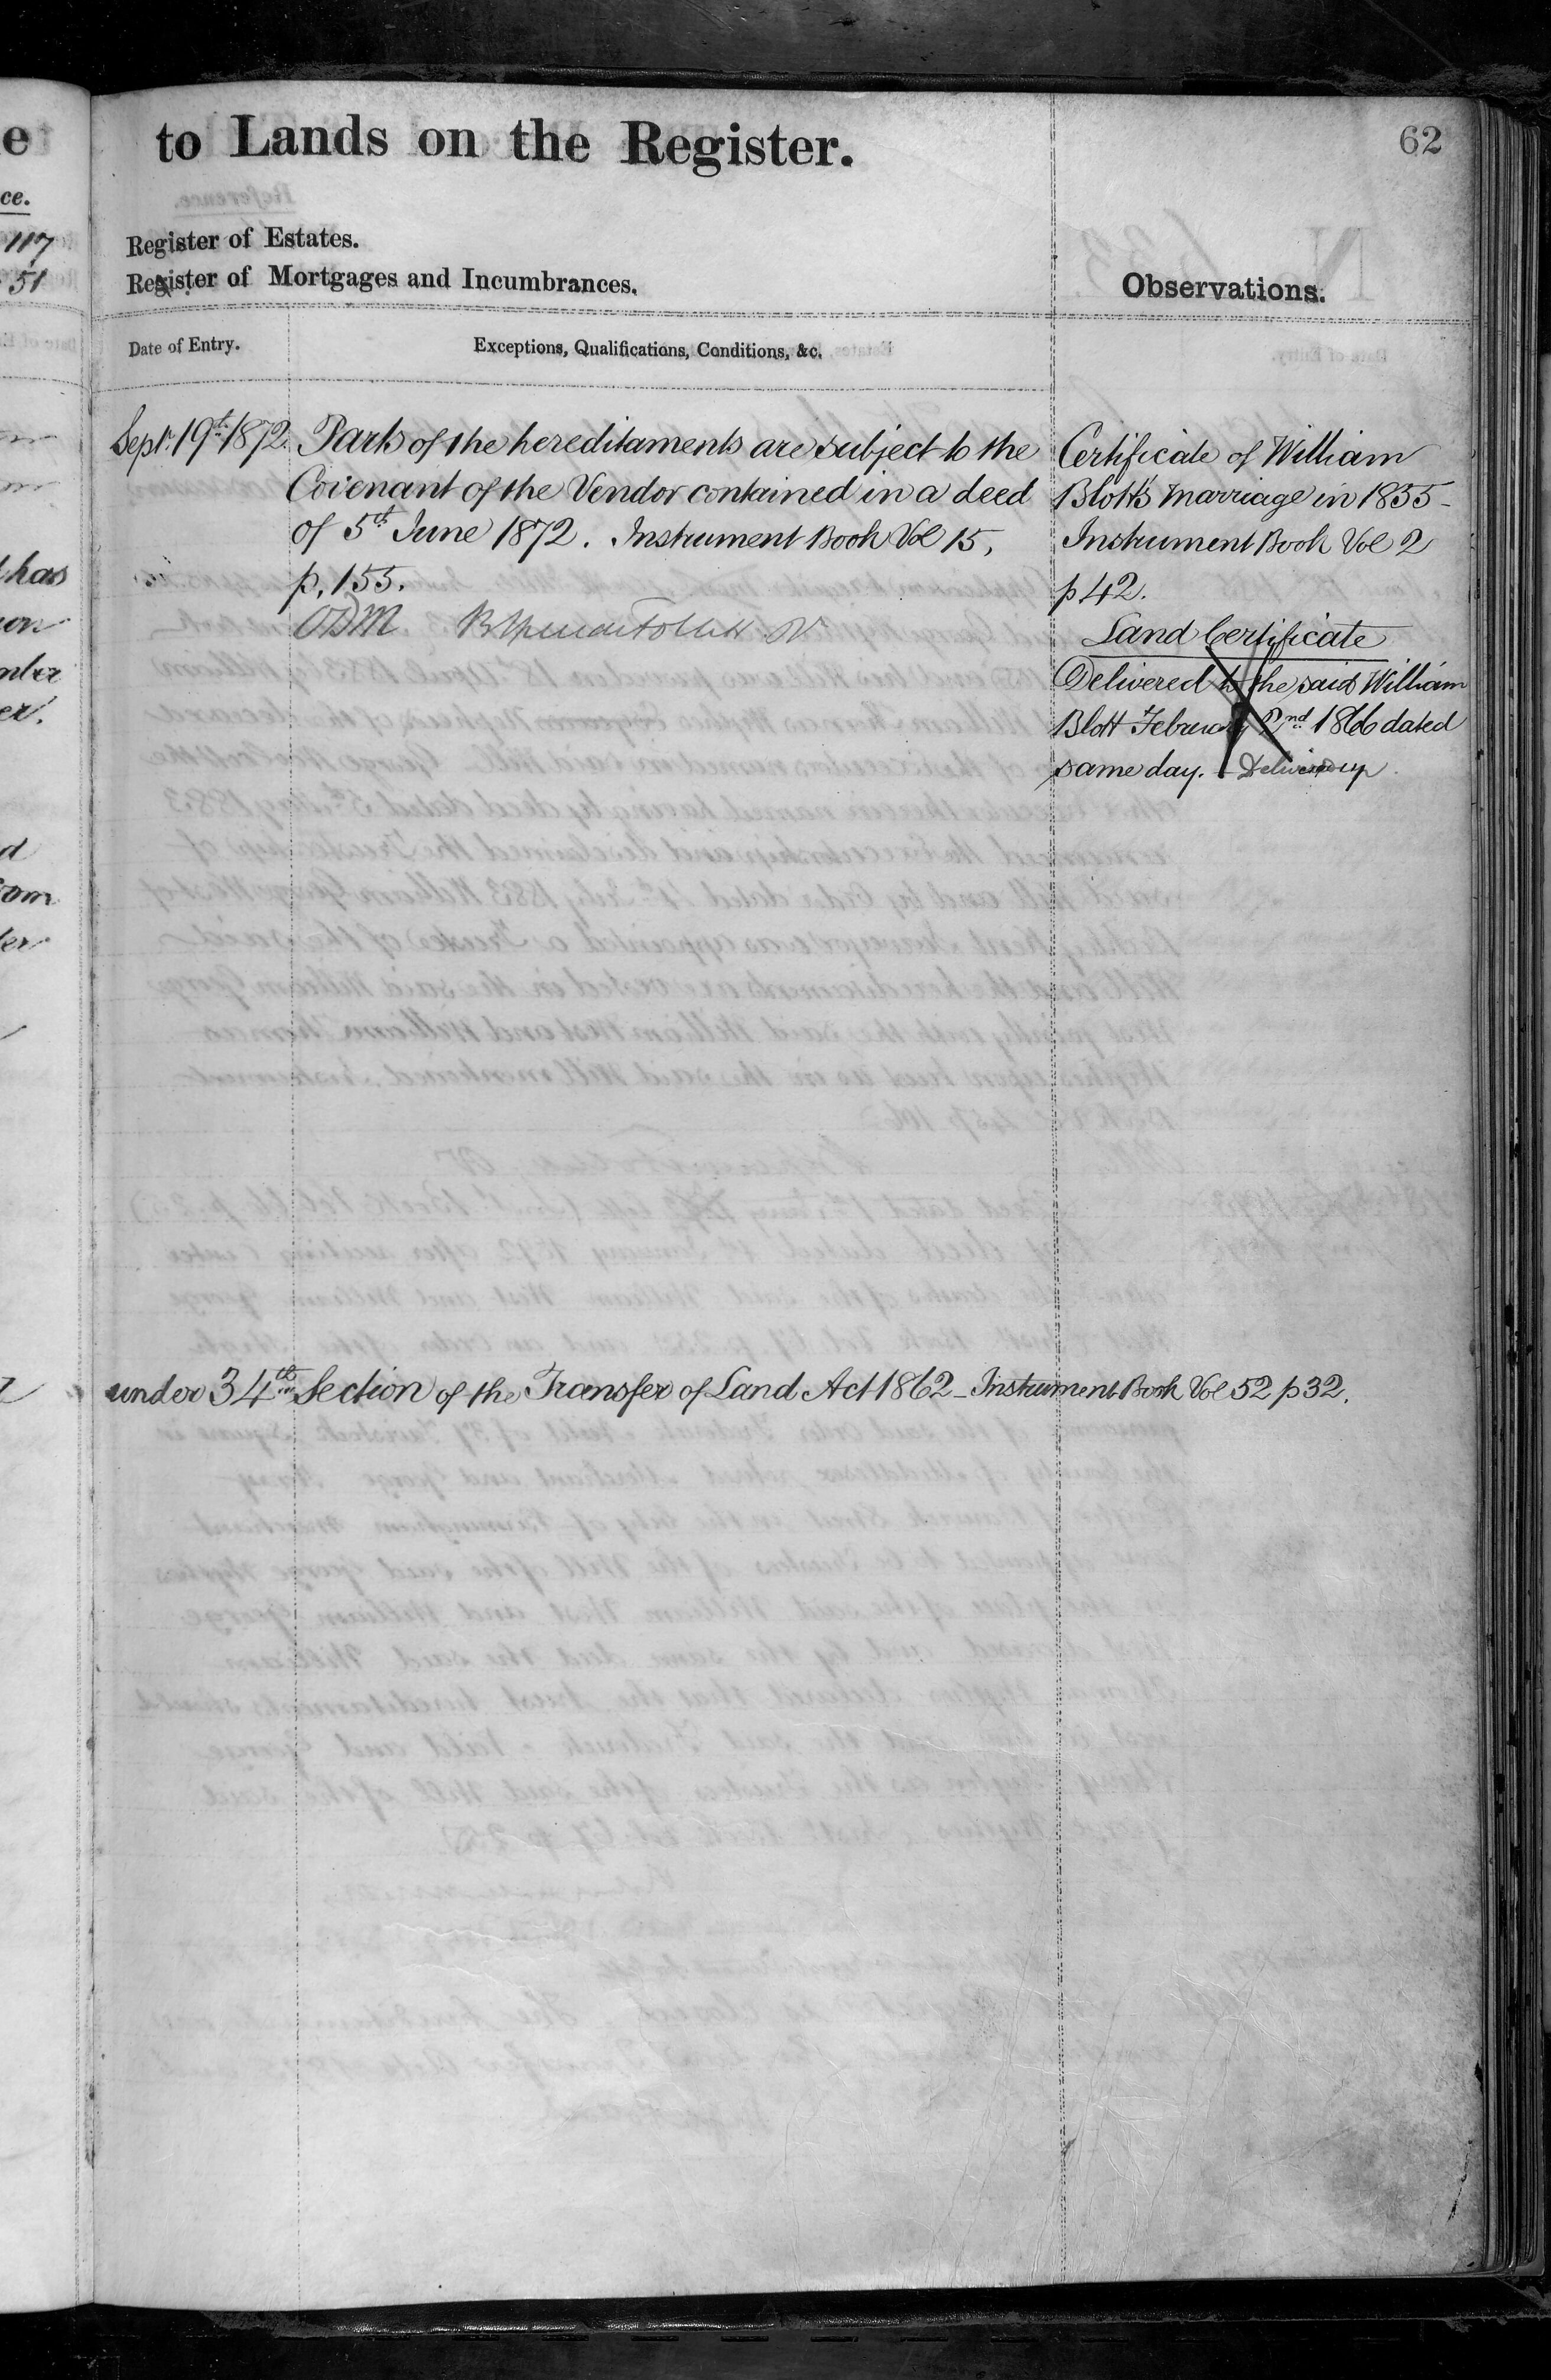 to Lands on the Register.
62
Register of Estates.
Register of Mortgages and Incumbrances.
Observations.
Date of Entry.
Exceptions, Qualifications, Conditions, &c.
Sept. 19th 1872. Parts of the hereditaments are subject to the
Covenant of the Vendor contained in a deed
of 5th June 1872. Instrument Book Vol 15,
p. 155.
Certificate of William
Blott's marriage in 1835-
Instrument Book Vol 2
p 42.
Land Certificate
Delivered to the said William
Blott February 2nd 1866 dated
same day. - Delivered up
under 34th Section of the Transfer of Land Act 1862 - Instrument Book Vol 52 p 32.
117
51
has